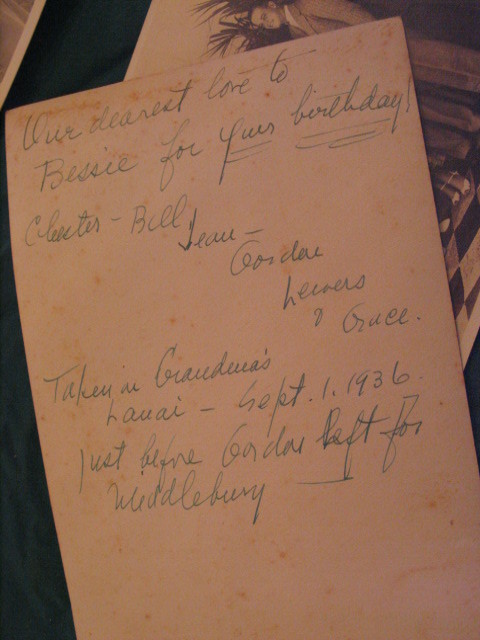 Our dearest love to
Bessie for your birthday!
Chester - Bill
Jean -
Gordon
Lewers
& Grace.
Taken on Grandma's
Lanai - Sept. 1. 1936.
just before Gordon left for
Middlebury